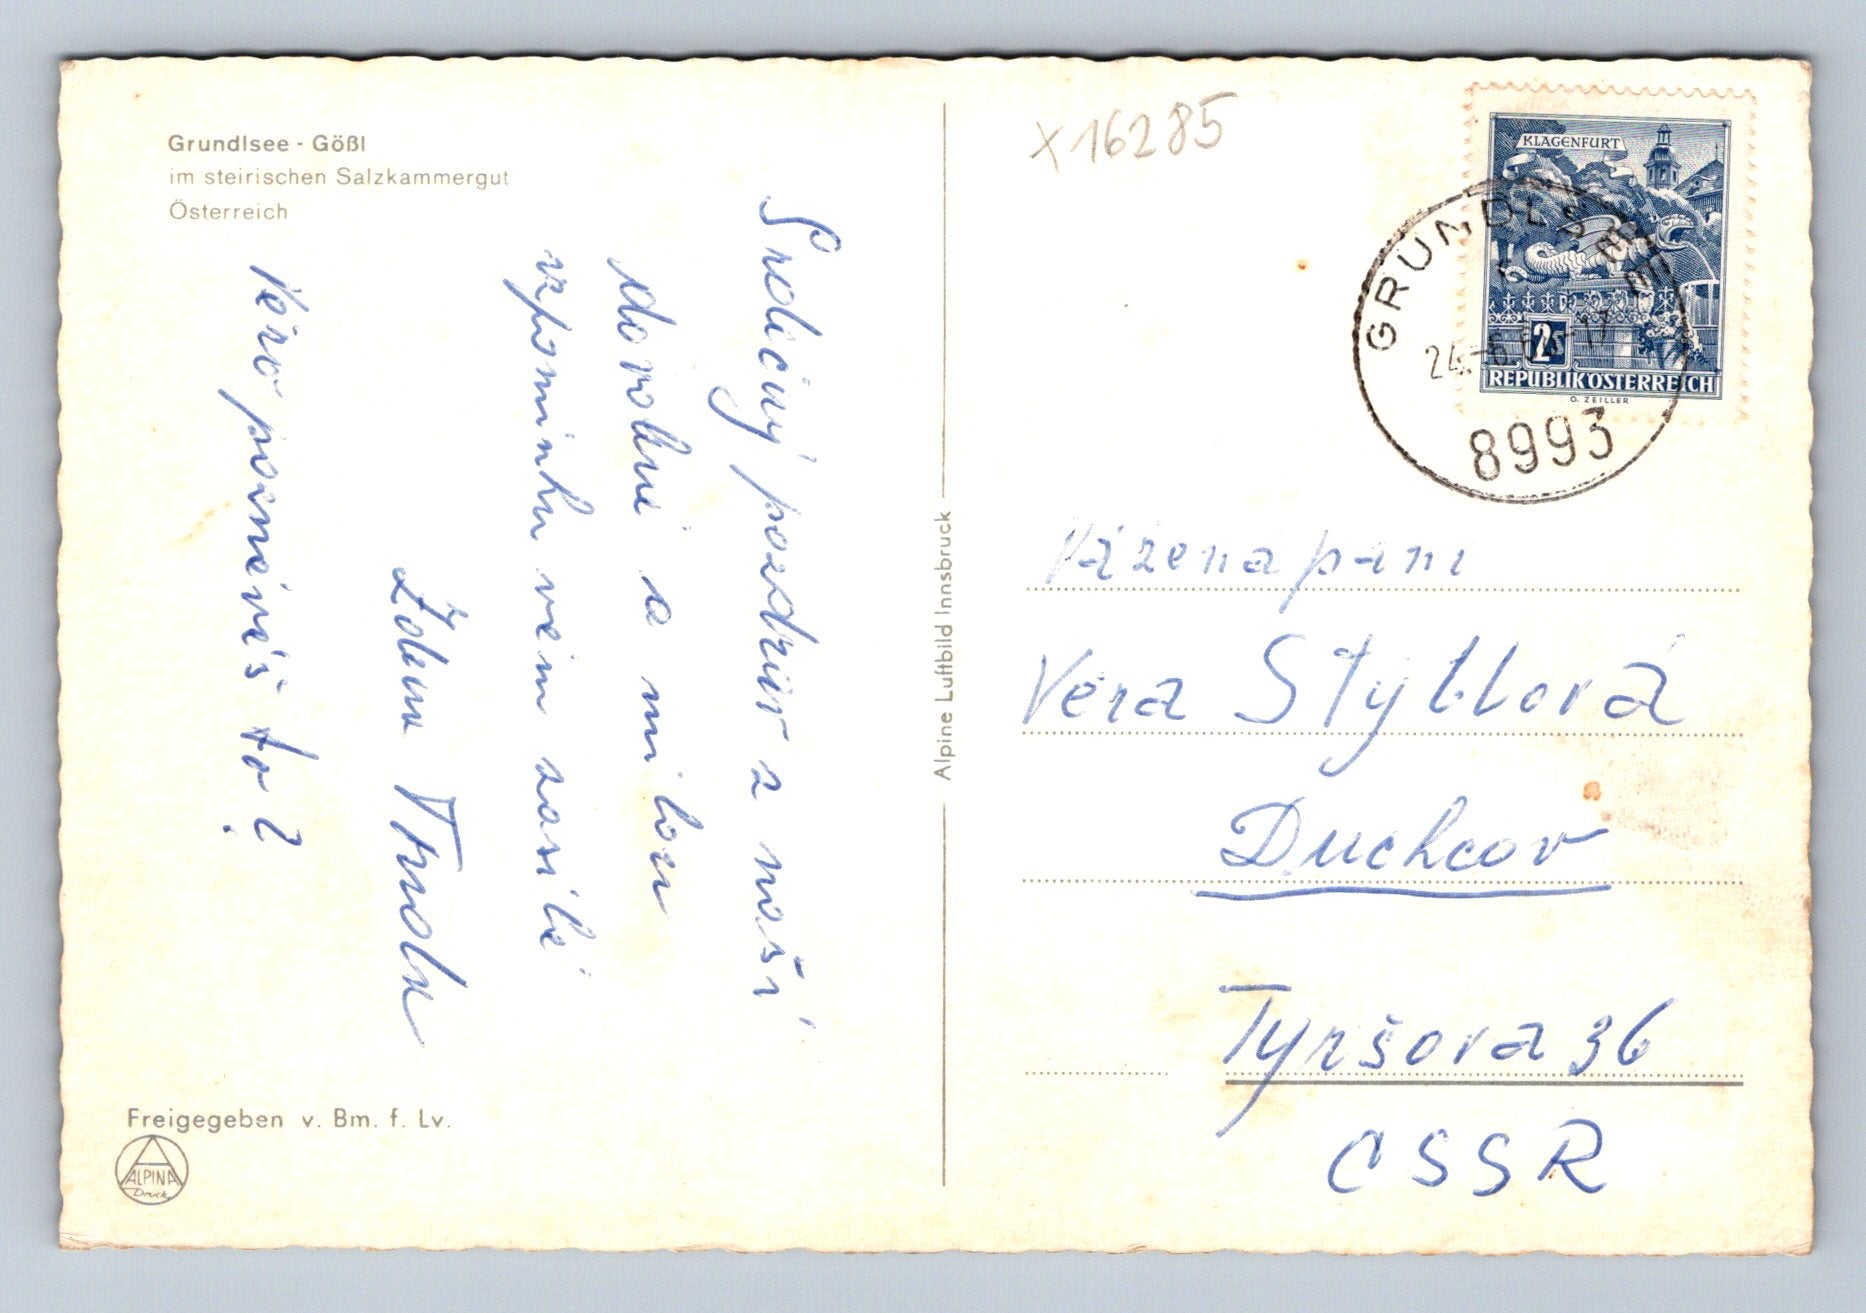 Grundlsee - Gößl
im steirischen Salzkammergut
Österreich
Srdečný pozdrav z naší
dovolené a milou
vzpomínku vám zasílá
Věro poznáváš to?
Freigegeben v. Bm. f. Lv.
ALPINA
Druck
Alpine Luftbild Innsbruck
X16285
KLAGENFURT
2s
REPUBLIK ÖSTERREICH
O. ZEILLER
GRUNDLSEE
8993
Vážená paní
Věra Stýblová
Duchcov
Tyršova 36
CSSR